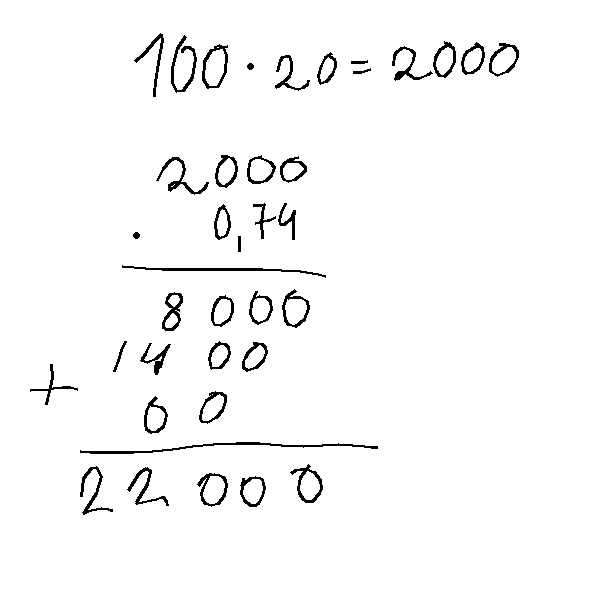 100 · 20 = 2000
2000
· 0,74
8000
1400
+ 00
22000